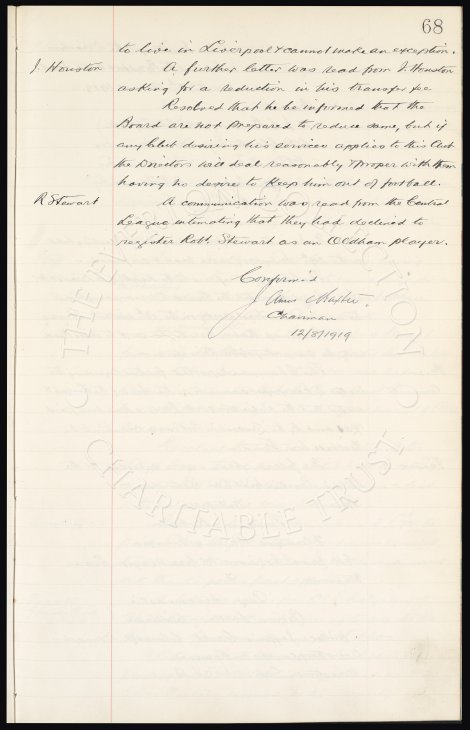 68
to live in Liverpool & cannot make an exception.
J. Houston A further letter was read from J. Houston
asking for a reduction in his transfer fee
Resolved that he be informed that the
Board are not prepared to reduce same, but if
any Club desiring his services applies to this Club
the Directors will deal reasonably & proper with them
having no desire to keep him out of football.
R Stewart A communication was read from the Central
League intimating that they had declined to
register Robt. Stewart as an Oldham player.
Confirmed
Chairman
12/8/1919
THE EVERTON COLLECTION
CHARITABLE TRUST